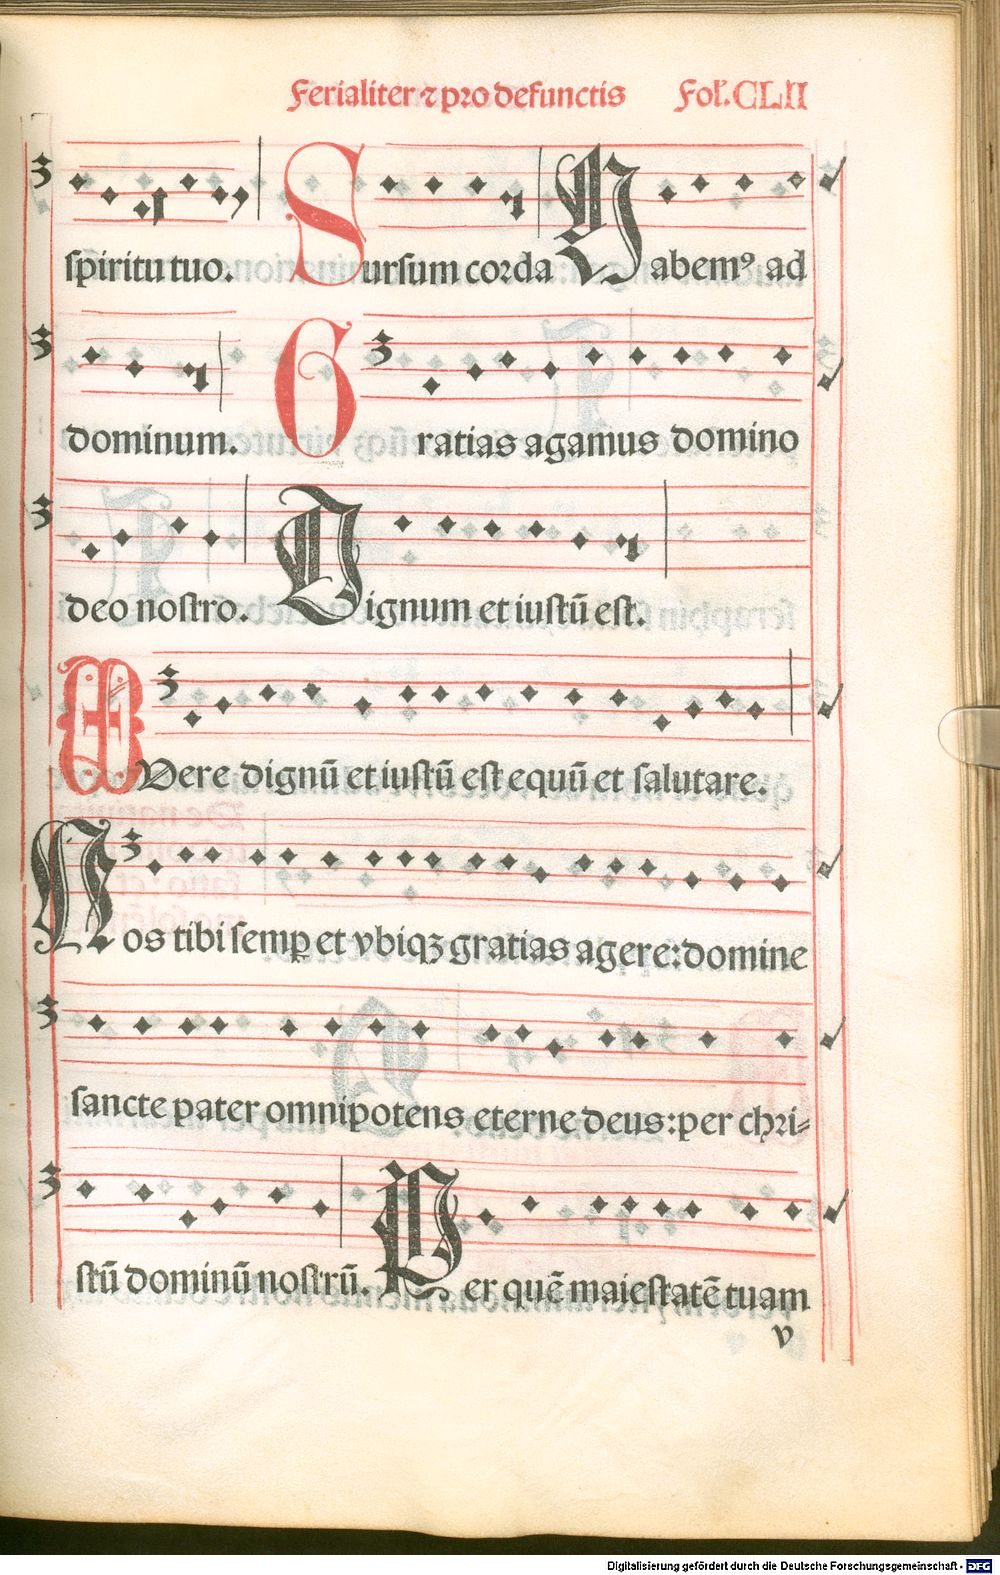 Ferialiter ⁊ pro defunctis Fol'. CLII
spiritu tuo. Sursum corda Habemꝰ ad
dominum. Gratias agamus domino
deo nostro. Dignum et iustū est.
Vere dignū et iustū est equū et salutare.
Nos tibi semꝑ et vbiqꝫ gratias agere: domine
sancte pater omnipotens eterne deus: per chri⸗
stū dominū nostrū. Per quē maiestatē tuam
v
Digitalisierung gefördert durch die Deutsche Forschungsgemeinschaft - DFG